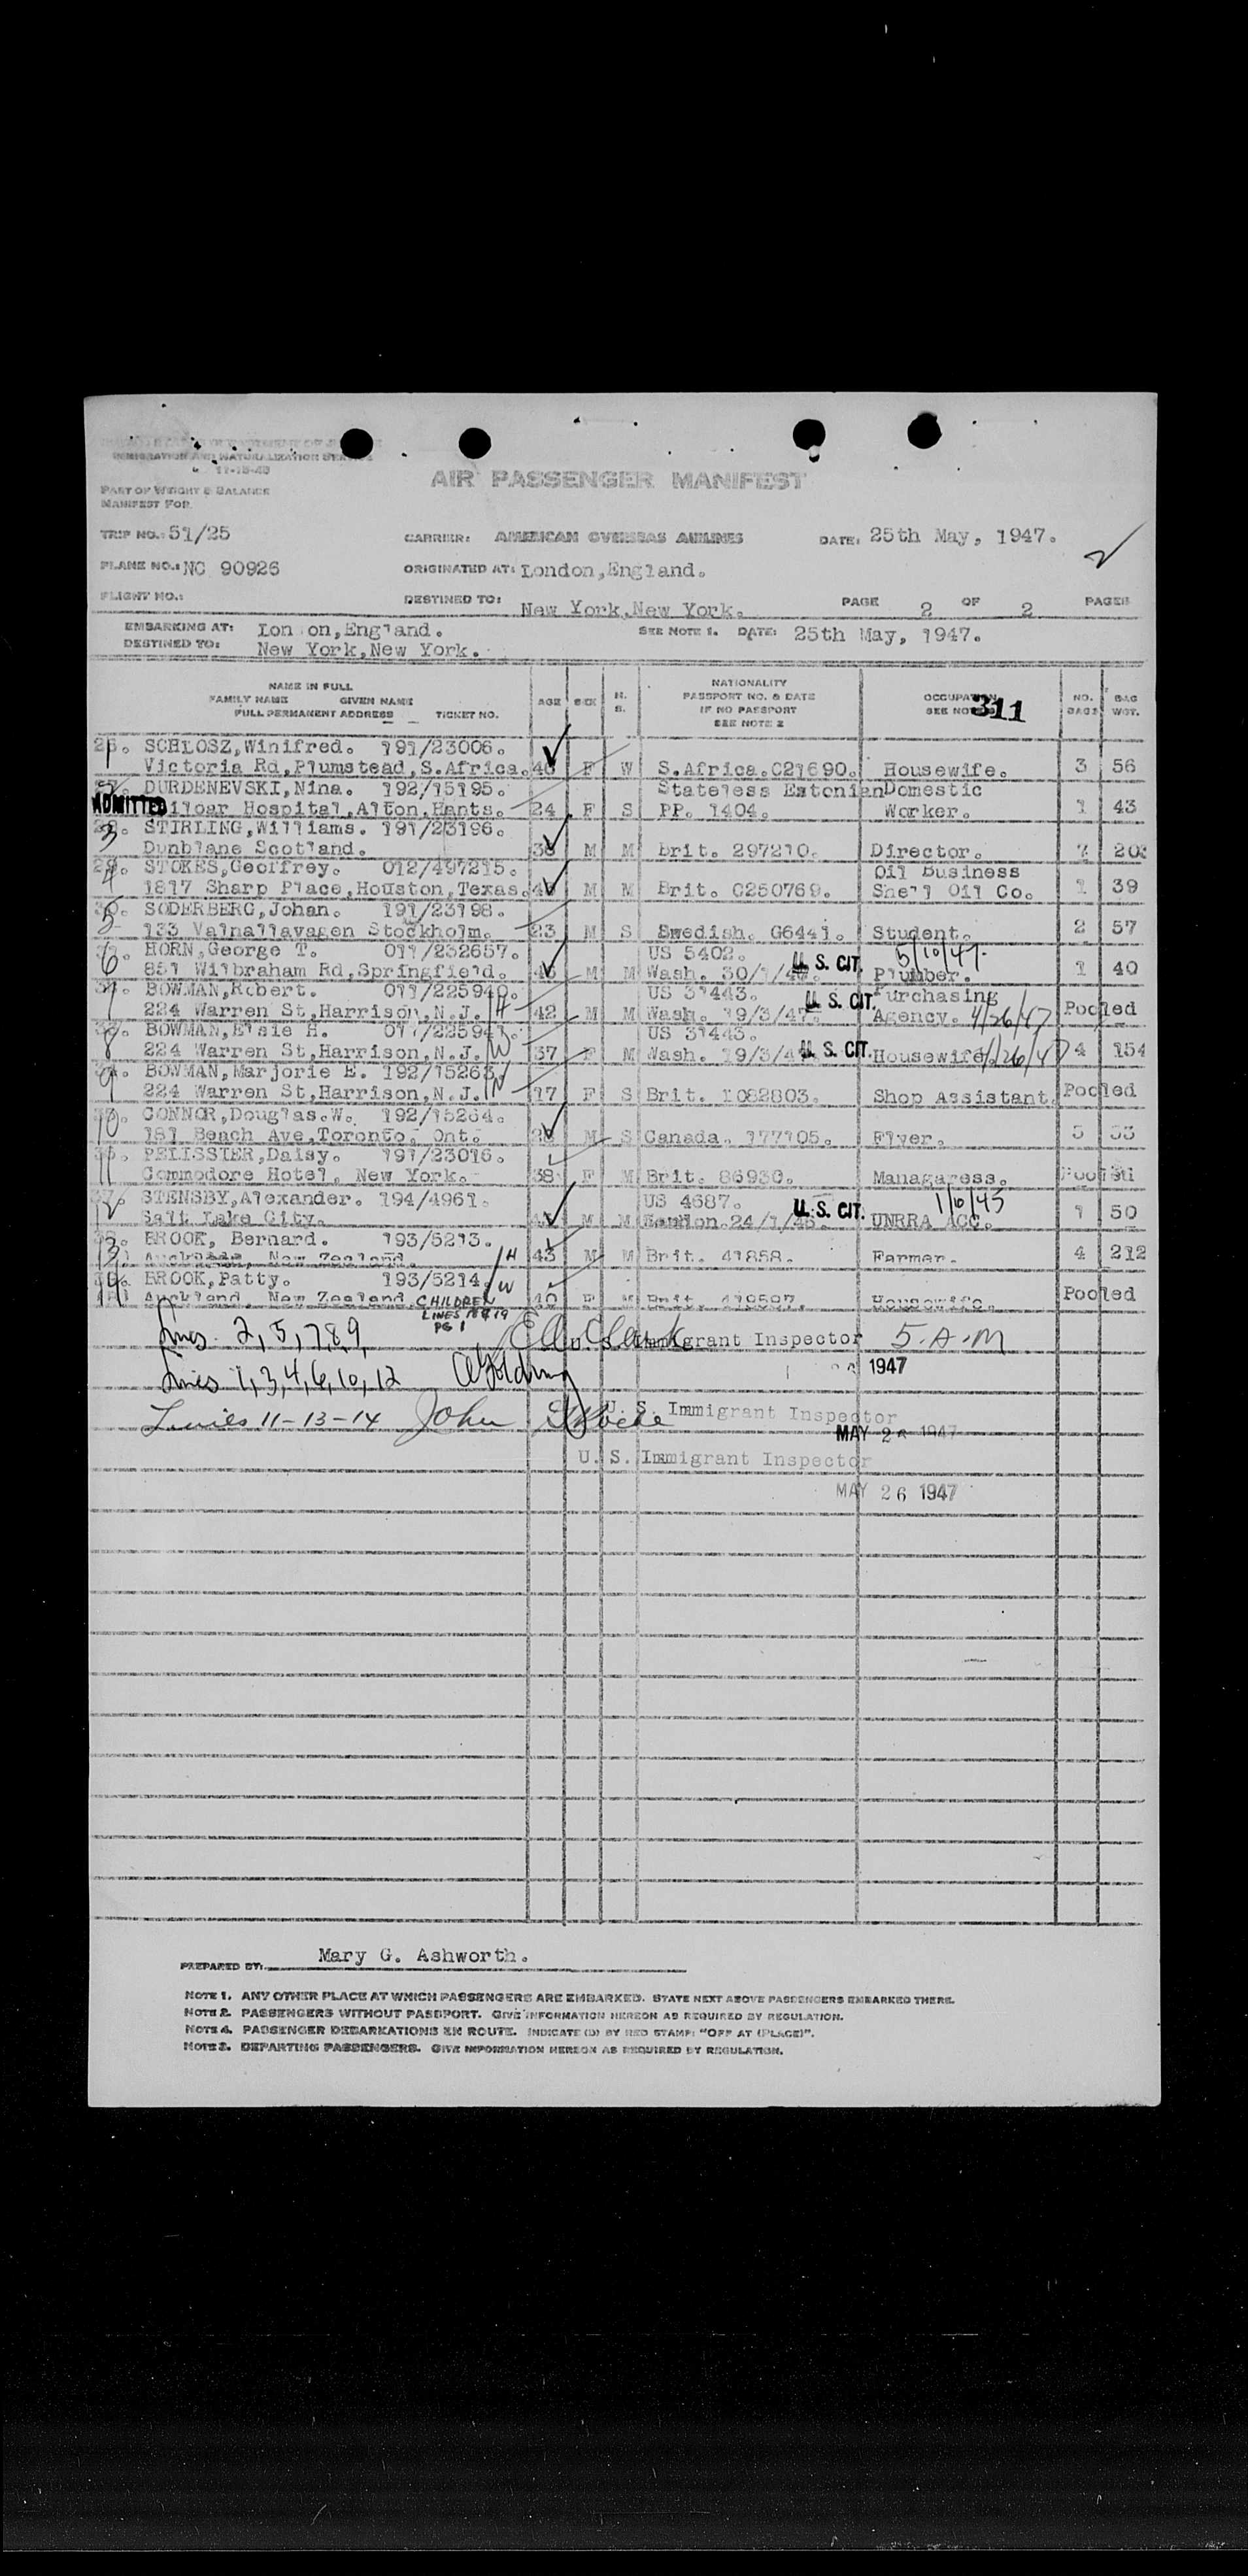 IMMIGRATION AND NATURALIZATION SERVICE
11-15-45
AIR PASSENGER MANIFEST
PART OF WEIGHT & BALANCE
MANIFEST FOR
TRIP NO.: 51/25 CARRIER: AMERICAN OVERSEAS AIRLINES DATE: 25th May, 1947.
2
PLANE NO.: NC 90926 ORIGINATED AT: London,England.
FLIGHT NO.: DESTINED TO: New York,New York. PAGE 2 OF 2 PAGES
EMBARKING AT: Lon on,England. SEE NOTE 1. DATE: 25th May, 1947.
DESTINED TO: New York,New York.
NAME IN FULL
FAMILY NAME GIVEN NAME
FULL PERMANENT ADDRESS TICKET NO.
AGE SEX M. S.
NATIONALITY
PASSPORT NO. & DATE
IF NO PASSPORT
SEE NOTE 2
OCCUPATION
SEE NOTE
311
NO. BAGS
BAG WGT.
1 SCHLOSZ,Winifred. 191/23006.
Victoria Rd,Plumstead,S.Africa. F W S.Africa.C21690. Housewife. 3 56
DURDENEVSKI,Nina. 192/15195. Stateless Estonian Domestic
ADMITTED Hospital,Alton,Hants. 24 F S PP. 1404. Worker. 1 43
3 STIRLING,Williams. 191/23196.
Dunblane Scotland. M M Brit. 297210. Director.
4 STOKES,Geoffrey. 012/497215. Oil Business
1817 Sharp Place,Houston,Texas. M M Brit. C250769. Shell Oil Co. 1 39
5 SODERBERG,Johan. 191/23198.
133 Valhallavagen Stockholm. 23 M S Swedish. G6441. Student. 2 57
6 HORN,George T. 011/232657. US 5402. 5/10/47.
851 Wilbraham Rd,Springfield. M M Wash. 30/1/ U. S. CIT. Plumber. 1 40
7 BOWMAN,Robert. 011/225940. US 31443. Purchasing
224 Warren St,Harrison,N.J. H 42 M M Wash. 19/3/47. U. S. CIT. Agency. 4/26/47 Pooled
8 BOWMAN,Elsie H. 011/225941. US 31443.
224 Warren St,Harrison,N.J. W 37 F M Wash. 19/3/4 U. S. CIT. Housewife 4/26/47 4 154
9 BOWMAN,Marjorie E. 192/15263
224 Warren St,Harrison,N.J. 17 F S Brit. 1082803. Shop Assistant. Pooled
10 CONNOR,Douglas.W. 192/15264.
181 Beach Ave,Toronto. Ont. M S Canada. 177105. Flyer. 3 33
11 PELISSIER,Daisy. 191/23016.
Commodore Hotel, New York. 38 F M Brit. 86930. Managaress.
12 STENSBY,Alexander. 194/4961. US 4687. 1/10/45
Salt Lake City. M M London.24/1/46. U. S. CIT. UNRRA ACC. 1 50
13 BROOK, Bernard. 193/5213.
Auckland, New Zealand. H 43 M M Brit. 41858. Farmer. 4 212
14 BROOK,Patty. 193/5214. W
Auckland, New Zealand. 40 F M Brit. 419597. Housewife. Pooled
CHILDREN
LINES 18 & 19
PG 1
Lines. 2,5,7,8,9, U. S. Immigrant Inspector 5-A-M
1947
Lines 1,3,4,6,10,12
U. S. Immigrant Inspector
Lines 11-13-14 John
MAY 26 1947
U. S. Immigrant Inspector
MAY 26 1947
PREPARED BY: Mary G. Ashworth.
NOTE 1. ANY OTHER PLACE AT WHICH PASSENGERS ARE EMBARKED. STATE NEXT ABOVE PASSENGERS EMBARKED THERE.
NOTE 2. PASSENGERS WITHOUT PASSPORT. GIVE INFORMATION HEREON AS REQUIRED BY REGULATION.
NOTE 4. PASSENGER DEBARKATIONS EN ROUTE. INDICATE (D) BY RED STAMP: "OFF AT (PLACE)".
NOTE 3. DEPARTING PASSENGERS. GIVE INFORMATION HEREON AS REQUIRED BY REGULATION.